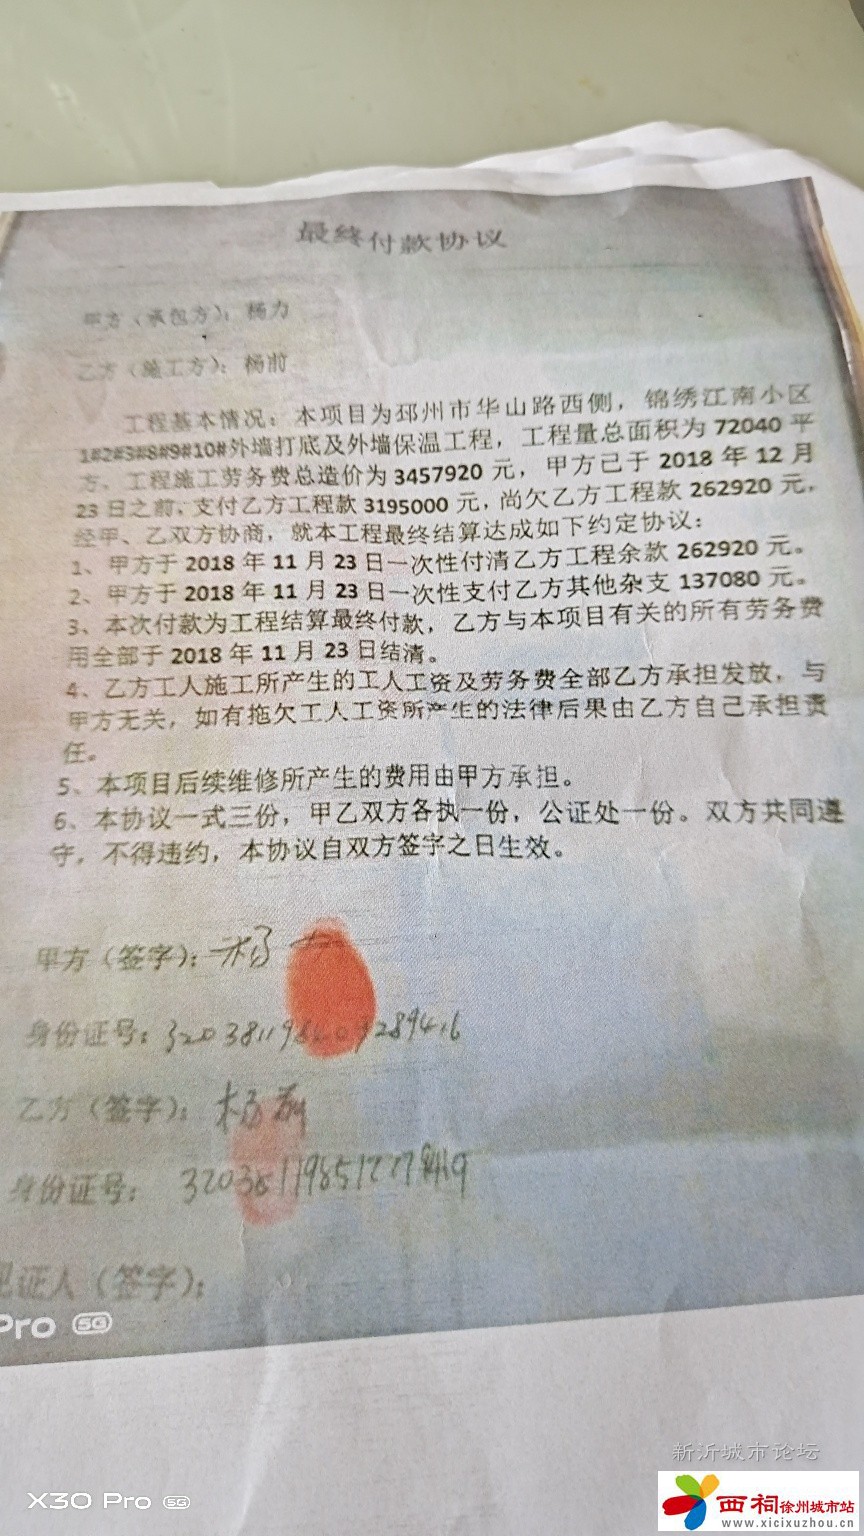 最终付款协议
甲方（承包方）：杨力
乙方（施工方）：杨前
工程基本情况：本项目为邳州市华山路西侧，锦绣江南小区
1#2#3#8#9#10#外墙打底及外墙保温工程，工程量总面积为 72040 平
方、工程施工劳务费总造价为 3457920 元，甲方已于 2018 年 12 月
23 日之前、支付乙方工程款 3195000 元，尚欠乙方工程款 262920 元，
经甲、乙双方协商，就本工程最终结算达成如下约定协议：
1、甲方于 2018 年 11 月 23 日一次性付清乙方工程余款 262920 元。
2、甲方于 2018 年 11 月 23 日一次性支付乙方其他杂支 137080 元。
3、本次付款为工程结算最终付款，乙方与本项目有关的所有劳务费
用全部于 2018 年 11 月 23 日结清。
4、乙方工人施工所产生的工人工资及劳务费全部乙方承担发放，与
甲方无关，如有拖欠工人工资所产生的法律后果由乙方自己承担责
任。
5、本项目后续维修所产生的费用由甲方承担。
6、本协议一式三份，甲乙双方各执一份，公证处一份。双方共同遵
守，不得违约，本协议自双方签字之日生效。
甲方（签字）：杨
身份证号：
乙方（签字）：杨前
身份证号：
见证人（签字）：
Pro 5G
X30 Pro 5G
新沂城市论坛
西祠徐州城市站
www.xicixuzhou.cn